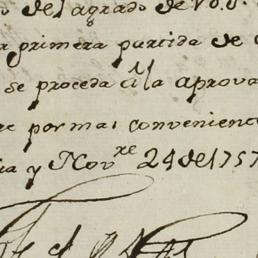 del agrado de Vo.S.
primera partida de
se proceda a la aprova
por mas convenien
ia y Nov.re 24 de 1757